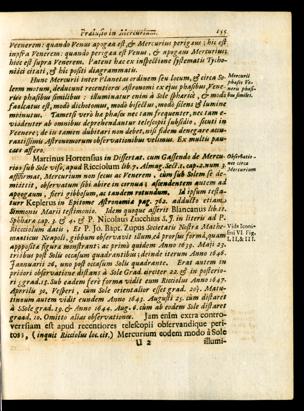 Prælusio in Mercurium. 155
Venerem: quando Venus apogæa est, & Mercurius perigæus; hic est
infra Venerem: quando perigæa est Venus, & apogæus Mercurius,
hic est supra Venerem. Patent hæc ex inspectione systematis Tycho-
nici citati, & hîc positi diagrammatis.
Hunc Mercurii inter Planetas ordinem seu locum, & circa So-
lem motum, deducunt recentiores Astronomi ex ejus phasibus, Vene-
ris phasibus similibus: illuminatur enim à Sole sphæricè, & modò
falcatus est, modò dichotomus, modò bisectus, modò silens & lumine
Mercurii
phases Ve-
neris phasi-
bus similes.
motivitus. Tametsi verò hæ phases nec tam frequenter, nec tam e-
videnter ab omnibus deprehendantur telescopii subsidio, sicuti in
Venere; de iis tamen dubitari non debet, nisi fidem denegare accu-
ratissimis Astronomorum observationibus velimus. Ex multis pau-
cas affero.
Martinus Hortensius in Dissertat. cum Gassendo de Mercu-
rio sub Sole viso, apud Ricciolum lib. 7. Almag. Sect. 1. cap. 2. num. 3.
Observatio-
nes circa
Mercurium
assistimat, Mercurium non secus ac Venerem, cùm sub Solem se de-
mittit, observatum sibi abire in cornua; ascendentem autem ad
apogæum, fieri gibbosum, ac tandem rotundum. Id ipsum testa-
tur Keplerus in Epitome Astronomiæ pag. 762. adducto etiam
Simonis Marii testimonio. Idem quoque asserit Blancanus lib. 17.
Sphæræ cap. 3. & 4. & P. Nicolaus Zucchius S. J. in literis ad P.
Ricciolum datis, Et P. Jo. Bapt. Zupus Societatis Nostræ Mathe-
maticus Neapoli, gibbum observavit illum, eâ prorsus formâ, quam
Vide Iconis-
mi VI. Fig.
I, II, & III.
apposita figura monstrant: ac primò quidem Anno 1639. Maji 23.
tribus post Solis occasum quadrantibus; deinde iterum Anno 1646.
Januarii 26. uno post occasum Solis quadrante. Erat autem in
priori observatione distans à Sole Grad. circiter 22. & in posterio-
ri 19. grad. 15. Sub eadem ferè forma vidit eum Riccius Anno 1647.
Aprilis 30. Vesperi, cùm Sole orientalior esset grad. 20½. Matu-
tinum autem vidit eundem Anno 1643. Augusti 25. cùm distaret
à Sole grad. 19. & Anno 1644. Aug. 6. cùm ab eodem Sole distaret
grad. 10. Omitto alias observationes. Jam enim extra contro-
versiam est apud recentiores telescopii observandique peri-
tos, (inquit Ricciolus loc. cit.) Mercurium eodem modo à Sole
U 2 illumi-